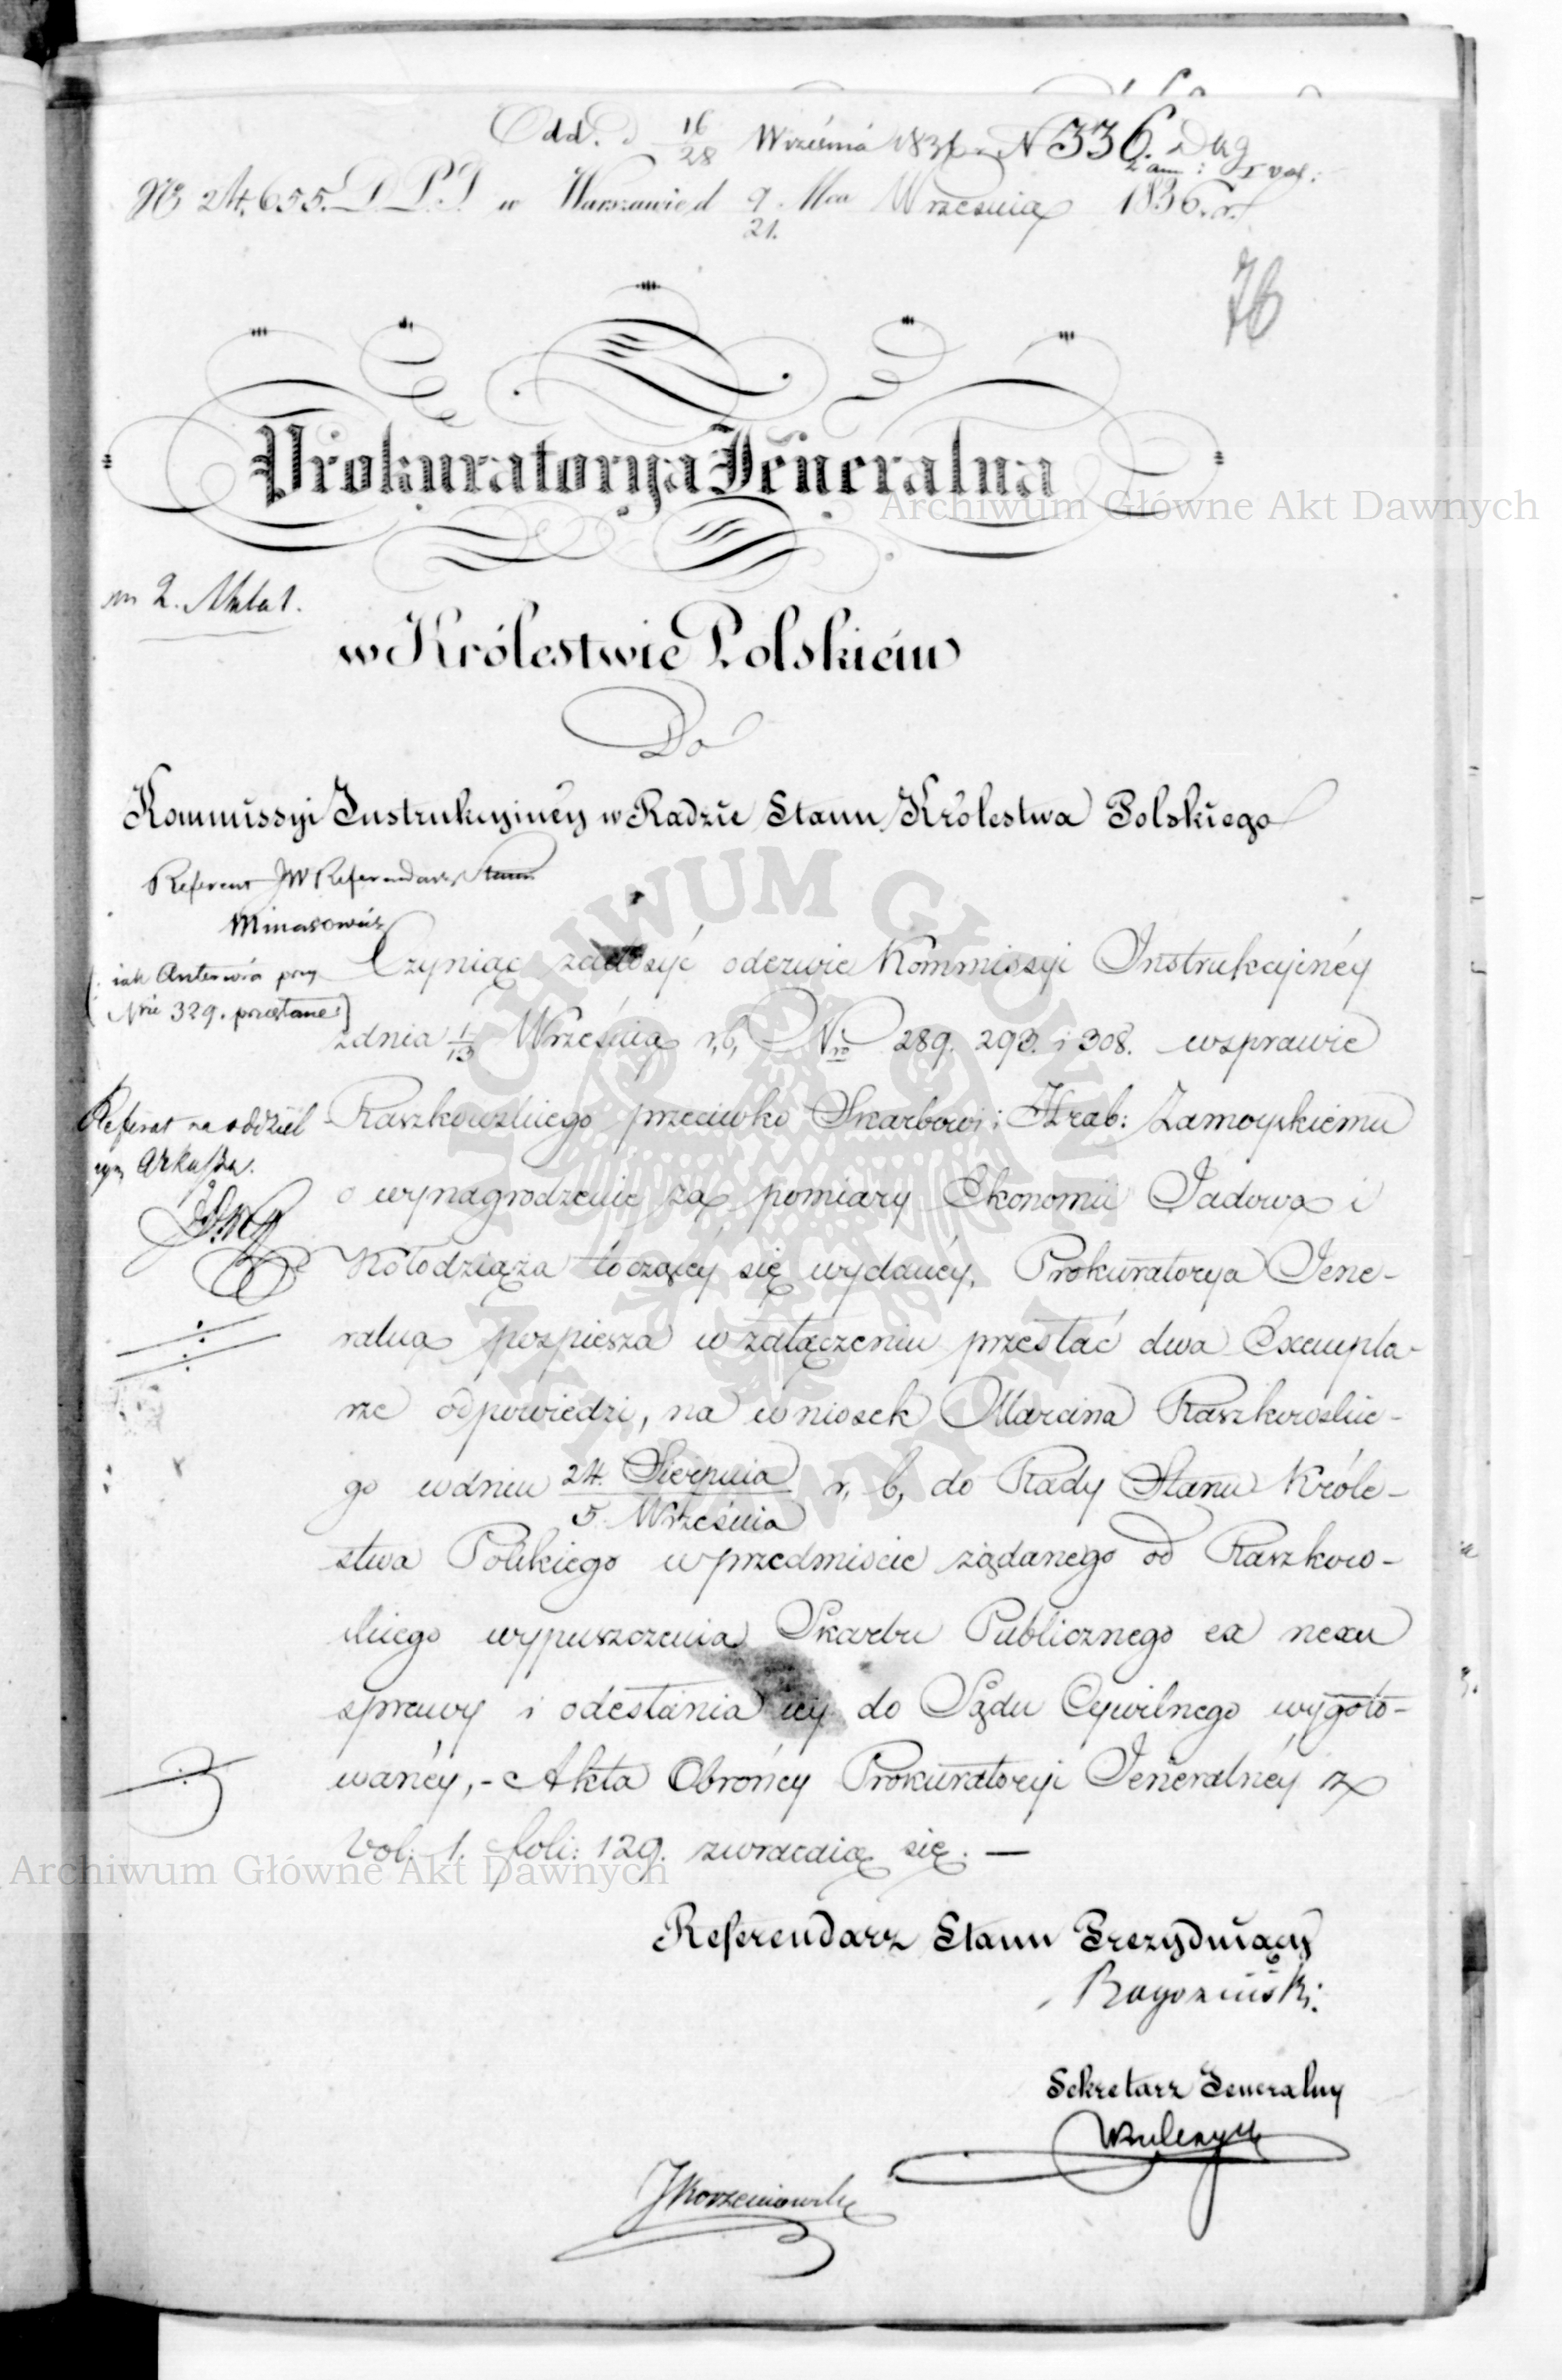 Odd. d 16/28 Września 1836 N 336. Dag
2 ann: I vol:
№ 24,655. D. P. J. w Warszawie d 9/21. Mca Września 1836. r.
76
Prokuratorya Jeneralna
Archiwum Główne Akt Dawnych
w Królestwie Polskiém
Do
Kommissyi Instrukcyinéy w Radzie Stanu Królestwa Polskiego
Referent JW Referendarz Stanu
Minasowicz
(: iak Anteriora przy
Nrie 329. przesłane:)
Czyniąc zadosyć odezwie Kommissyi Instrukcyinéy
zdnia 1/13 Września r, b, Nro 289. 293. i 308. wsprawie
Referat na oddziel
nym Arkuszu.
Raszkowskiego przeciwko Skarbowi i Hrab: Zamoyskiemu
o wynagrodzenie za pomiary Ekonomii Jadowa i
Kołodziąża toczącéy się wydanéy, Prokuratorya Jene-
ralna pospiesza w załączeniu przesłać dwa Exempla-
rze odpowiedzi, na wniosek Marcina Raszkowskie-
go wdniu 24. Sierpnia / 5. Września r, b, do Rady Stanu Króle-
stwa Polskiego w przedmiocie żądanego od Raszkow-
skiego wypuszczenia Skarbu Publicznego ex nexu
sprawy i odesłania iéy do Sądu Cywilnego wygoto-
wanéy,- Akta Obrońcy Prokuratoryi Jeneralnéy z
Vol: 1. foli: 129. zwracaią się. —
Archiwum Główne Akt Dawnych
Referendarz Stanu Prezyduiący
Sekretarz Jeneralny
JKorzeniowski
ARCHIWUM GŁÓWNE AKT DAWNYCH